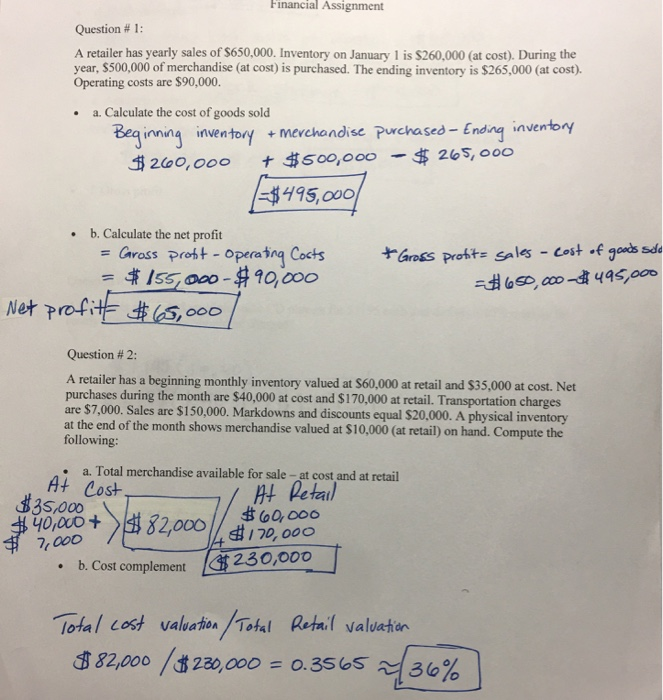 Financial Assignment
Question # 1:
A retailer has yearly sales of $650,000. Inventory on January 1 is $260,000 (at cost). During the
year, $500,000 of merchandise (at cost) is purchased. The ending inventory is $265,000 (at cost).
Operating costs are $90,000.
• a. Calculate the cost of goods sold
Beginning inventory + merchandise purchased - Ending inventory
$260,000 + $500,000 - $265,000
=$495,000
• b. Calculate the net profit
= Gross profit - Operating Costs
= $155,000 - $90,000
* Gross profit= sales - cost of goods sold
=$650,000 - $495,000
Net profit= $65,000
Question # 2:
A retailer has a beginning monthly inventory valued at $60,000 at retail and $35,000 at cost. Net
purchases during the month are $40,000 at cost and $170,000 at retail. Transportation charges
are $7,000. Sales are $150,000. Markdowns and discounts equal $20,000. A physical inventory
at the end of the month shows merchandise valued at $10,000 (at retail) on hand. Compute the
following:
• a. Total merchandise available for sale – at cost and at retail
At Cost
$35,000
$40,000 +
$ 7,000
$82,000
At Retail
$60,000
+ $170,000
$230,000
• b. Cost complement
Total cost valuation / Total Retail valuation
$82,000 / $230,000 = 0.3565 ≈ 36%